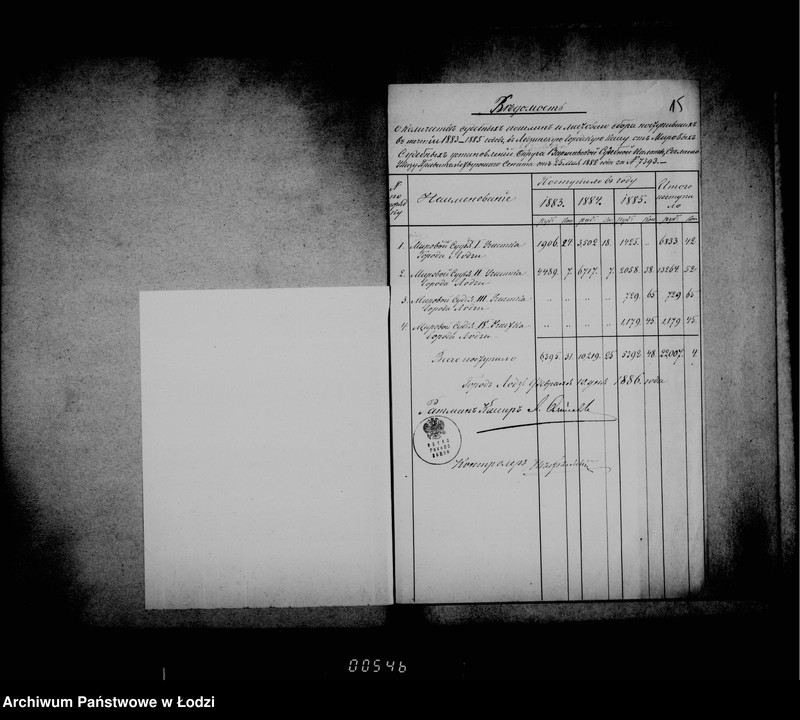 Вѣдомость
15
о количествѣ судебныхъ пошлинъ и листоваго сбора поступившихъ
въ теченіи 1883-1885 годовъ, въ Лодзинскую городскую кассу отъ Мировыхъ
Судебныхъ установленій Округа Варшавской Судебной Палаты, согласно
Указу Правительствующаго Сената отъ 25 Мая 1882 года за № 7393.—
№ по порядку Наименованіе Поступило въ году Итого поступило
1883. 1884. 1885.
руб. коп. руб. коп. руб. коп. руб. коп.
1. Мировой Судья I. Участка 1906. 24. 3502 18. 1425. „ 6833 42
Города Лодзи
2. Мировой Судья II. Участка 4489. 7. 6717. 7. 2058. 38. 13264. 52.
Города Лодзи
3. Мировой Судья III. Участка „ „ „ „ 729. 65 729 65
Города Лодзи
4. Мировой Судья IV. Участка „ „ „ „ 1,179. 45 1,179 45.
Города Лодзи
Всего поступило 6395. 31. 10,219. 25 5392 48. 22007. 4.
Городъ Лодзь Февраля дня 1886. года
Ратманъ Кассиръ А.
Контролеръ
00546
Archiwum Państwowe w Łodzi